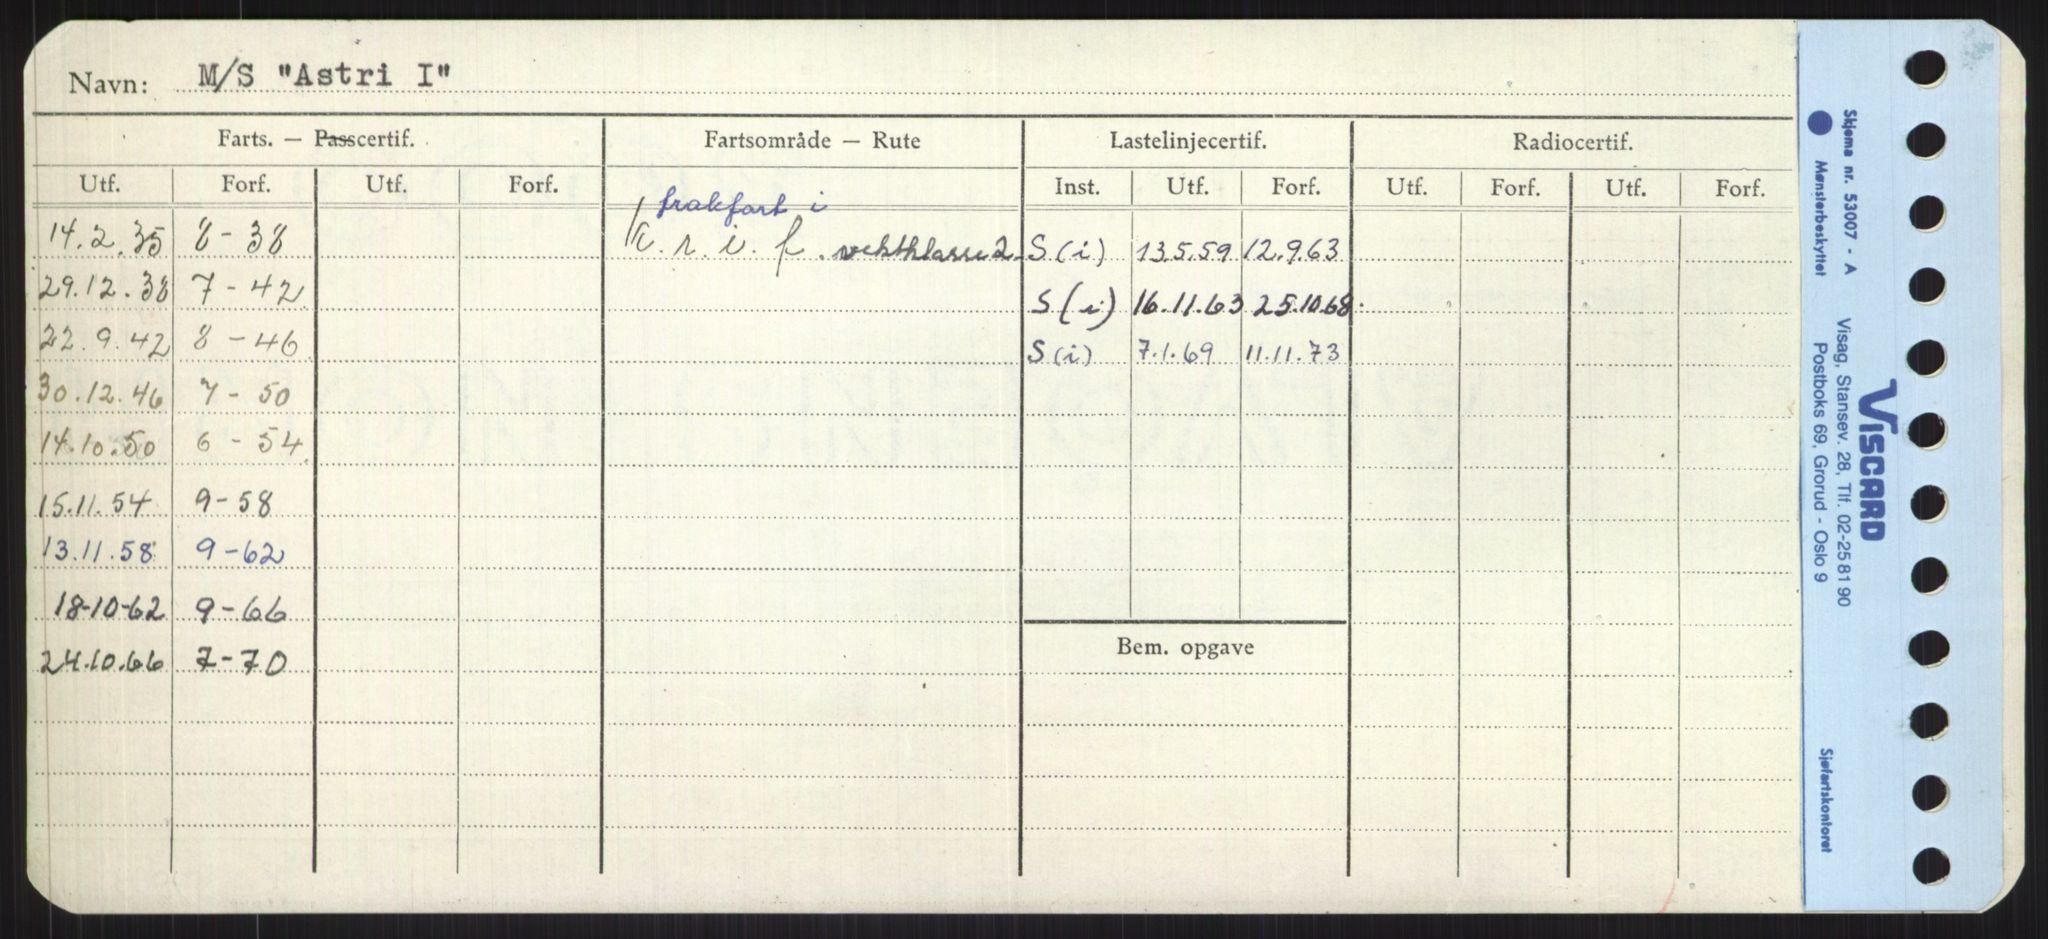 Navn: M/S "Astri I"
Farts. — Passcertif. Fartsområde — Rute Lastelinjecertif. Radiocertif.
Utf. Forf. Utf. Forf. Inst. Utf. Forf. Utf. Forf. Utf. Forf.
frakfart i
14.2.35 8-38 K.r.i.f. vektklasse 2 S(i) 13.5.59 12.9.63
29.12.38 7-42 S(i) 16.11.63 25.10.68
22.9.42 8-46 S(i) 7.1.69 11.11.73
30.12.46 7-50
14.10.50 6-54
15.11.54 9-58
13.11.58 9-62
18-10-62 9-66
Bem. opgave
24.10.66 7-70
Skjema nr. 53007 - A
Mønsterbeskyttet
VISCARD
Visag, Stansev. 28, Tlf. 02-25 81 90
Postboks 69, Grorud - Oslo 9
Sjøfartskontoret